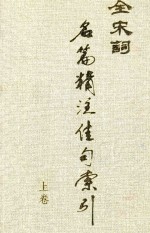 全宋詞
名篇精注佳句索引
上卷